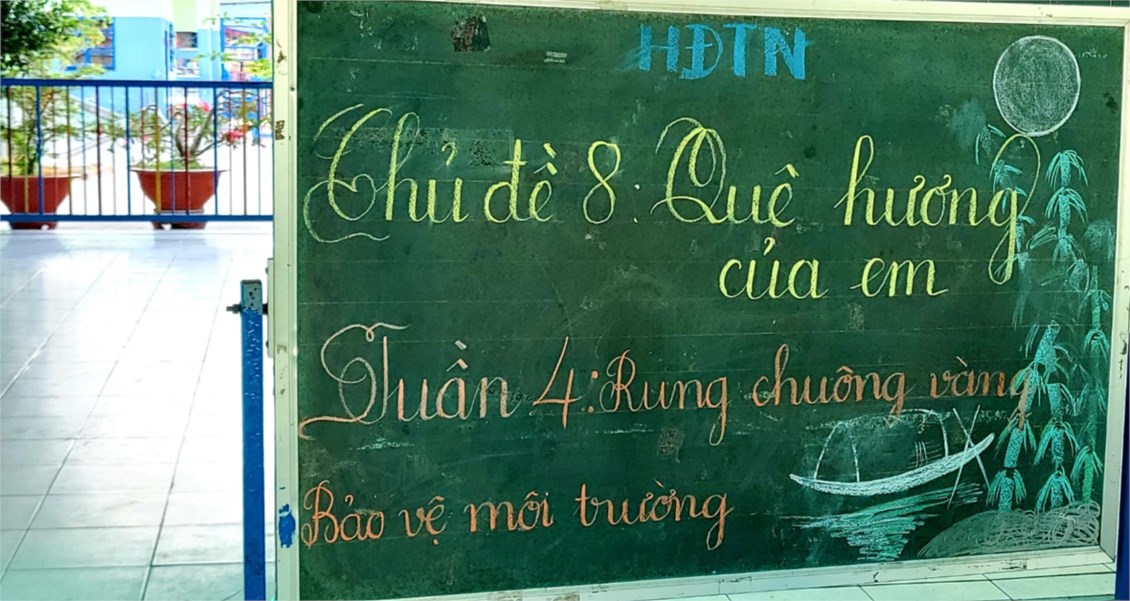 HĐTN
Chủ đề 8: Quê hương
của em
Tuần 4: Rung chuông vàng
Bảo vệ môi trường